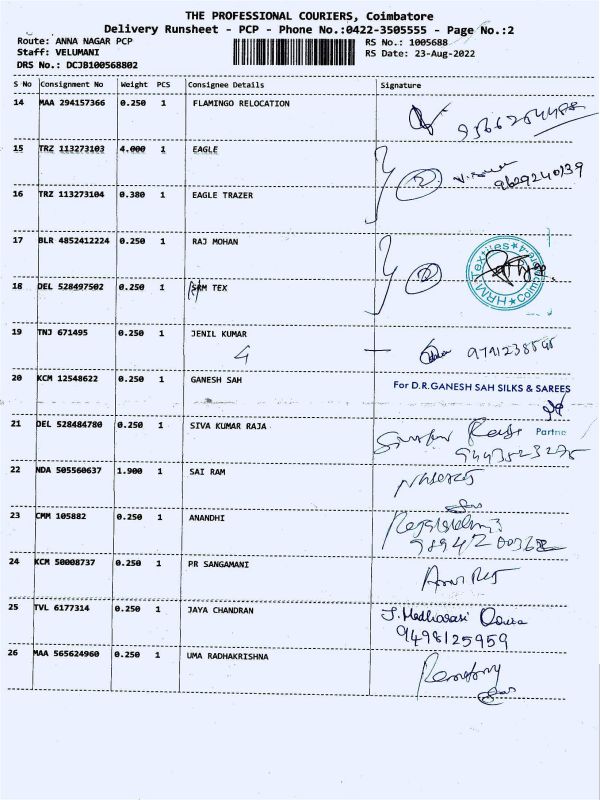 THE PROFESSIONAL COURIERS, Coimbatore
Delivery Runsheet - PCP - Phone No.:0422-3505555 - Page No.:2
Route: ANNA NAGAR PCP RS No.: 1005688
Staff: VELUMANI RS Date: 23-Aug-2022
DRS No.: DCJB100568802
S No Consignment No Weight PCS Consignee Details Signature
14 MAA 294157366 0.250 1 FLAMINGO RELOCATION
15 TRZ 113273103 4.000 1 EAGLE
9629240139
16 TRZ 113273104 0.380 1 EAGLE TRAZER
17 BLR 4852412224 0.250 1 RAJ MOHAN 2
18 DEL 528497502 0.250 1 SRM TEX
19 TNJ 671495 0.250 1 JENIL KUMAR
4
20 KCM 12548622 0.250 1 GANESH SAH For D.R.GANESH SAH SILKS & SAREES
21 DEL 528484780 0.250 1 SIVA KUMAR RAJA Partne
9443523275
22 NDA 505560637 1.900 1 SAI RAM
23 CMM 105882 0.250 1 ANANDHI
24 KCM 50008737 0.250 1 PR SANGAMANI
25 TVL 6177314 0.250 1 JAYA CHANDRAN
9498125959
26 MAA 565624960 0.250 1 UMA RADHAKRISHNA